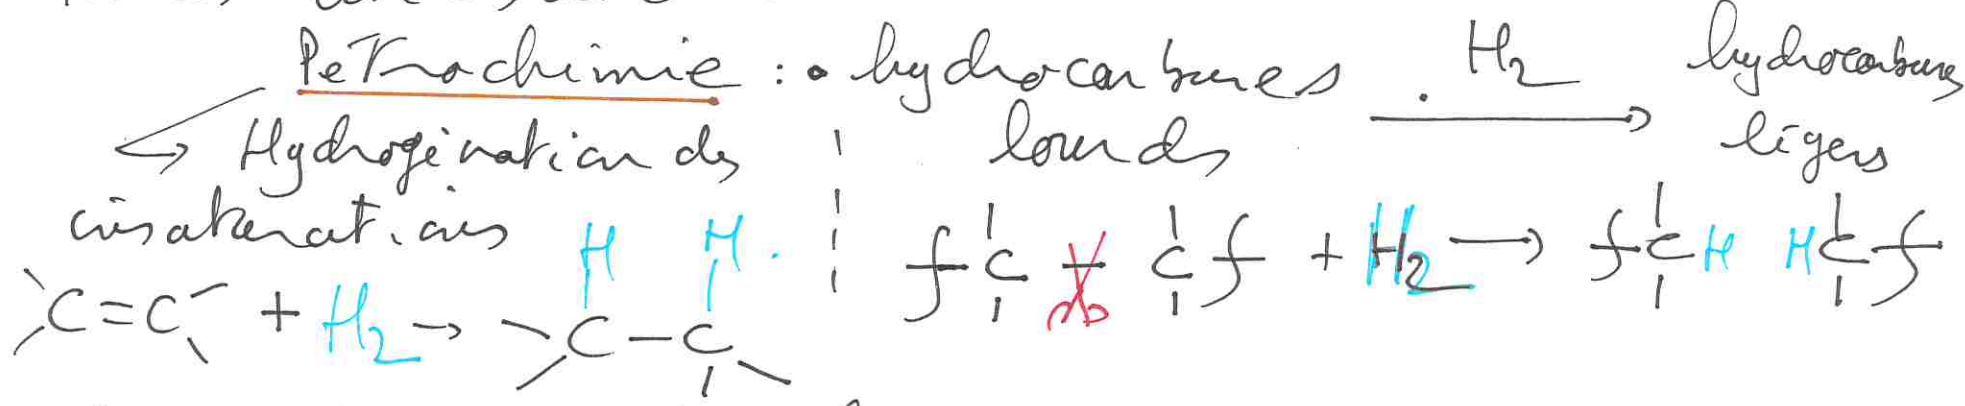 Petrochimie : • hydrocarbures lourds H2 → hydrocarbures légers
↳ Hydrogénation des insaturations
C=C + H2 → C–C
H H
C – C + H2 → C H H C